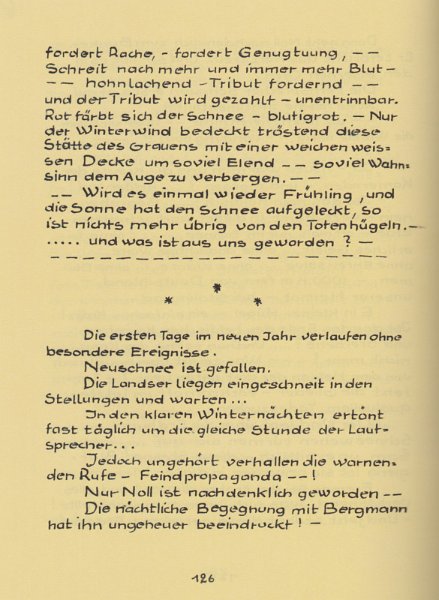 fordert Rache, - fordert Genugtuung, – –
Schreit nach mehr und immer mehr Blut –
– – hohnlachend – Tribut fordernd – –
und der Tribut wird gezahlt – unentrinnbar.
Rot färbt sich der Schnee – blutigrot. – Nur
der Winterwind bedeckt tröstend diese
Stätte des Grauens mit einer weichen weis=
sen Decke um soviel Elend – – soviel Wahn=
sinn dem Auge zu verbergen. – –
– – Wird es einmal wieder Frühling, und
die Sonne hat den Schnee aufgeleckt, so
ist nichts mehr übrig von den Totenhügeln. –
..... und was ist aus uns geworden ? –
– – – – – – – – – – – – – – – – – – – –
* * *
Die ersten Tage im neuen Jahr verlaufen ohne
besondere Ereignisse.
Neuschnee ist gefallen.
Die Landser liegen eingeschneit in den
Stellungen und warten ...
In den klaren Winternächten ertönt
fast täglich um die gleiche Stunde der Laut=
sprecher...
Jedoch ungehört verhallen die warnen=
den Rufe – Feindpropaganda – – !
Nur Noll ist nachdenklich geworden – –
Die nächtliche Begegnung mit Bergmann
hat ihn ungeheuer beeindruckt ! –
126